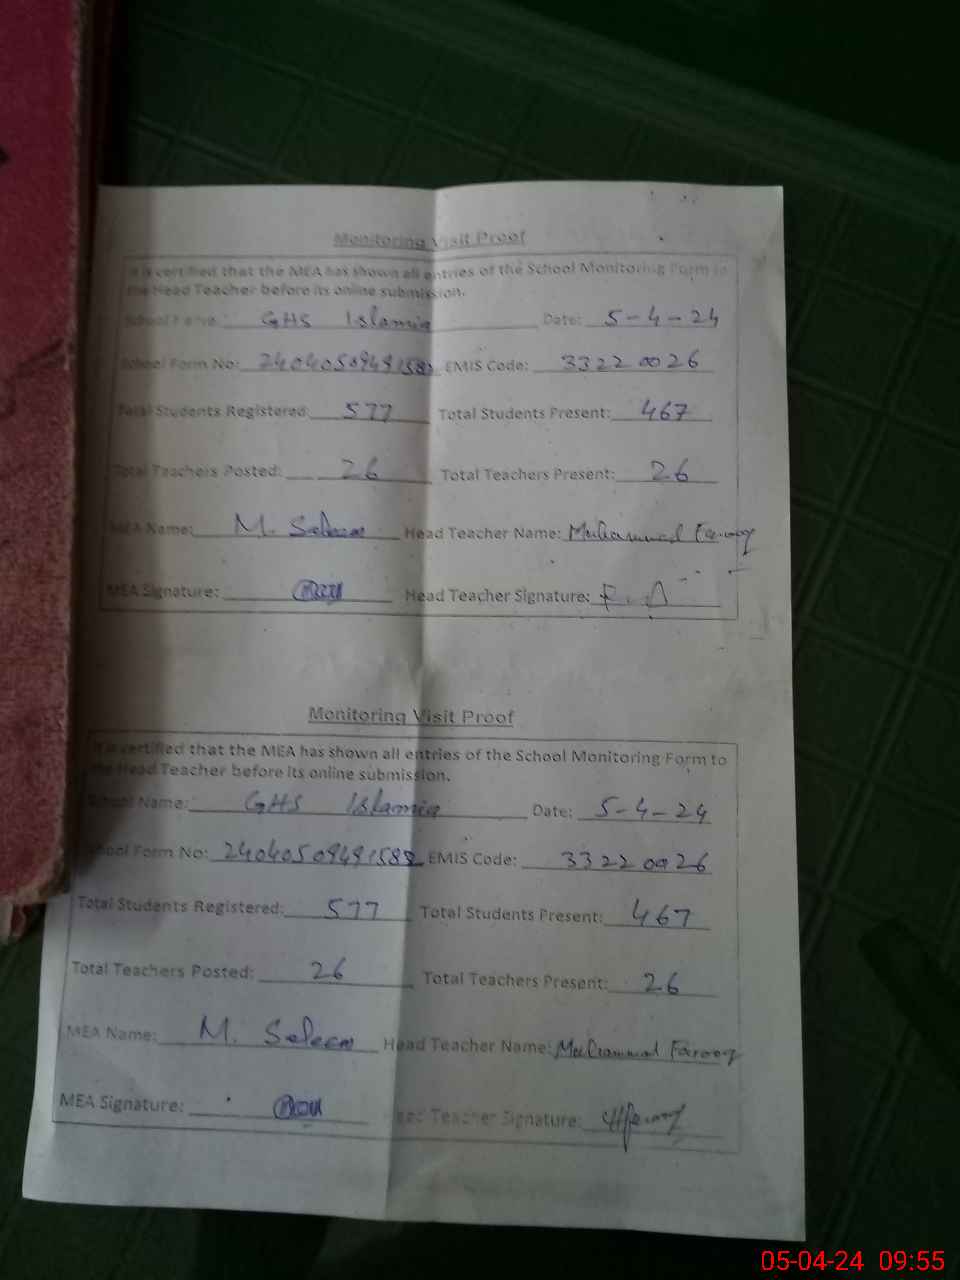 Monitoring Visit Proof
It is certified that the MEA has shown all entries of the School Monitoring Form to
the Head Teacher before its online submission.
School Name: GHS Islamia Date: 5-4-24
School Form No: 2404050949158 EMIS Code: 33220026
Total Students Registered: 577 Total Students Present: 467
Total Teachers Posted: 26 Total Teachers Present: 26
MEA Name: M. Saleem Head Teacher Name: Muhammad Farooq
MEA Signature: Head Teacher Signature:
Monitoring Visit Proof
It is certified that the MEA has shown all entries of the School Monitoring Form to
the Head Teacher before its online submission.
School Name: GHS Islamia Date: 5-4-24
School Form No: EMIS Code: 33220026
Total Students Registered: 577 Total Students Present: 467
Total Teachers Posted: 26 Total Teachers Present: 26
MEA Name: M. Saleem Head Teacher Name: Muhammad Farooq
MEA Signature: Head Teacher Signature:
05-04-24 09:55